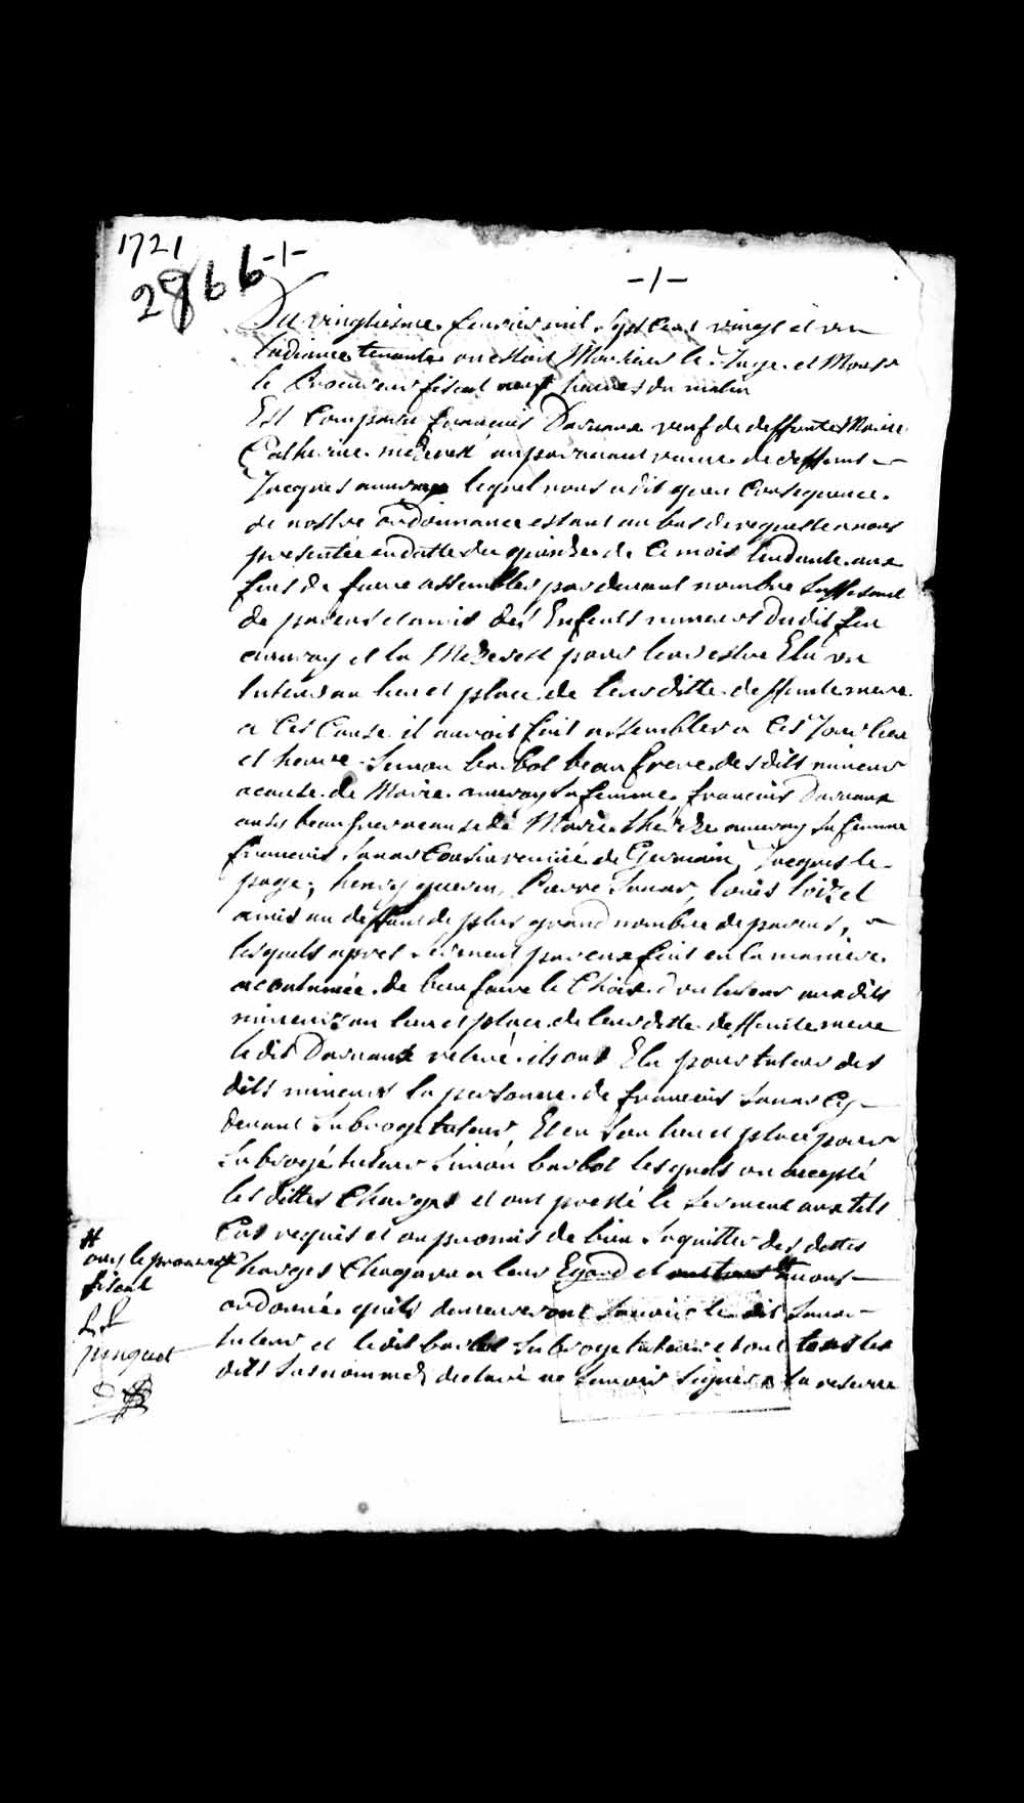 1721
2866 -1-
-1-
Du vingtiesme feuvrier mil sept cent vingt et un
Laudiance tenante ou estoit Monsieur le Juge et Monsr
le Procureur fiscal neuf heures du matin
Est comparu francois Davaux veuf de deffunte Marie
Catherine mezeret auparavant veuve de deffunt
Jacques auuray lequel nous a dit quen consequence
de nostre ordonnance estant au bas de requeste a nous
presentée en datte du quinze de ce mois tendante aux
fins de faire assembler pardevant nombre suffisant
de parens et amis des Enfants mineurs dudit feu
auuray et la Mezeret pour leur estre Elu un
tuteur au lieu et place de leur ditte deffunte mere
a ces cause il auroit fait assembler a ces Jour lieu
et heure Simon barbot beau frere des dits mineurs
a cause de Marie auuray sa femme, francois Davaux
aussy beau frere a cause de Marie therese auuray sa femme
francois Sauar Cousin remué de Germain, Jacques le
page, henry guerin, Pierre Sauar, louis loizel
amis au deffaut de plus grand nombre de parens,
lesquels apres serment par eux fait en la maniere
acoutumée de bien faire le choix d'un tuteur aux dits
mineurs au lieu et place de leur ditte deffunte mere
ledit Davaux retiré ils ont Elu pour tuteur des
dits mineurs la personne de francois Sauar cy
devant subrogé tuteur, Et en son lieu et place pour
subrogé tuteur Simon barbot lesquels on accepté
les dittes Charges et ont presté le serment aux tels
Cas requis et on promis de bien saquitter des dettes
Charges Chaqun a leur Egard et nous
ordonné quils demeureront scauoir ledit Sauar
tuteur et ledit barbot subrogé tuteur et ont tous les
dits susnommez declaré ne scauoir signer a la reserve
#
ouy le procureur
fiscal
pinguet